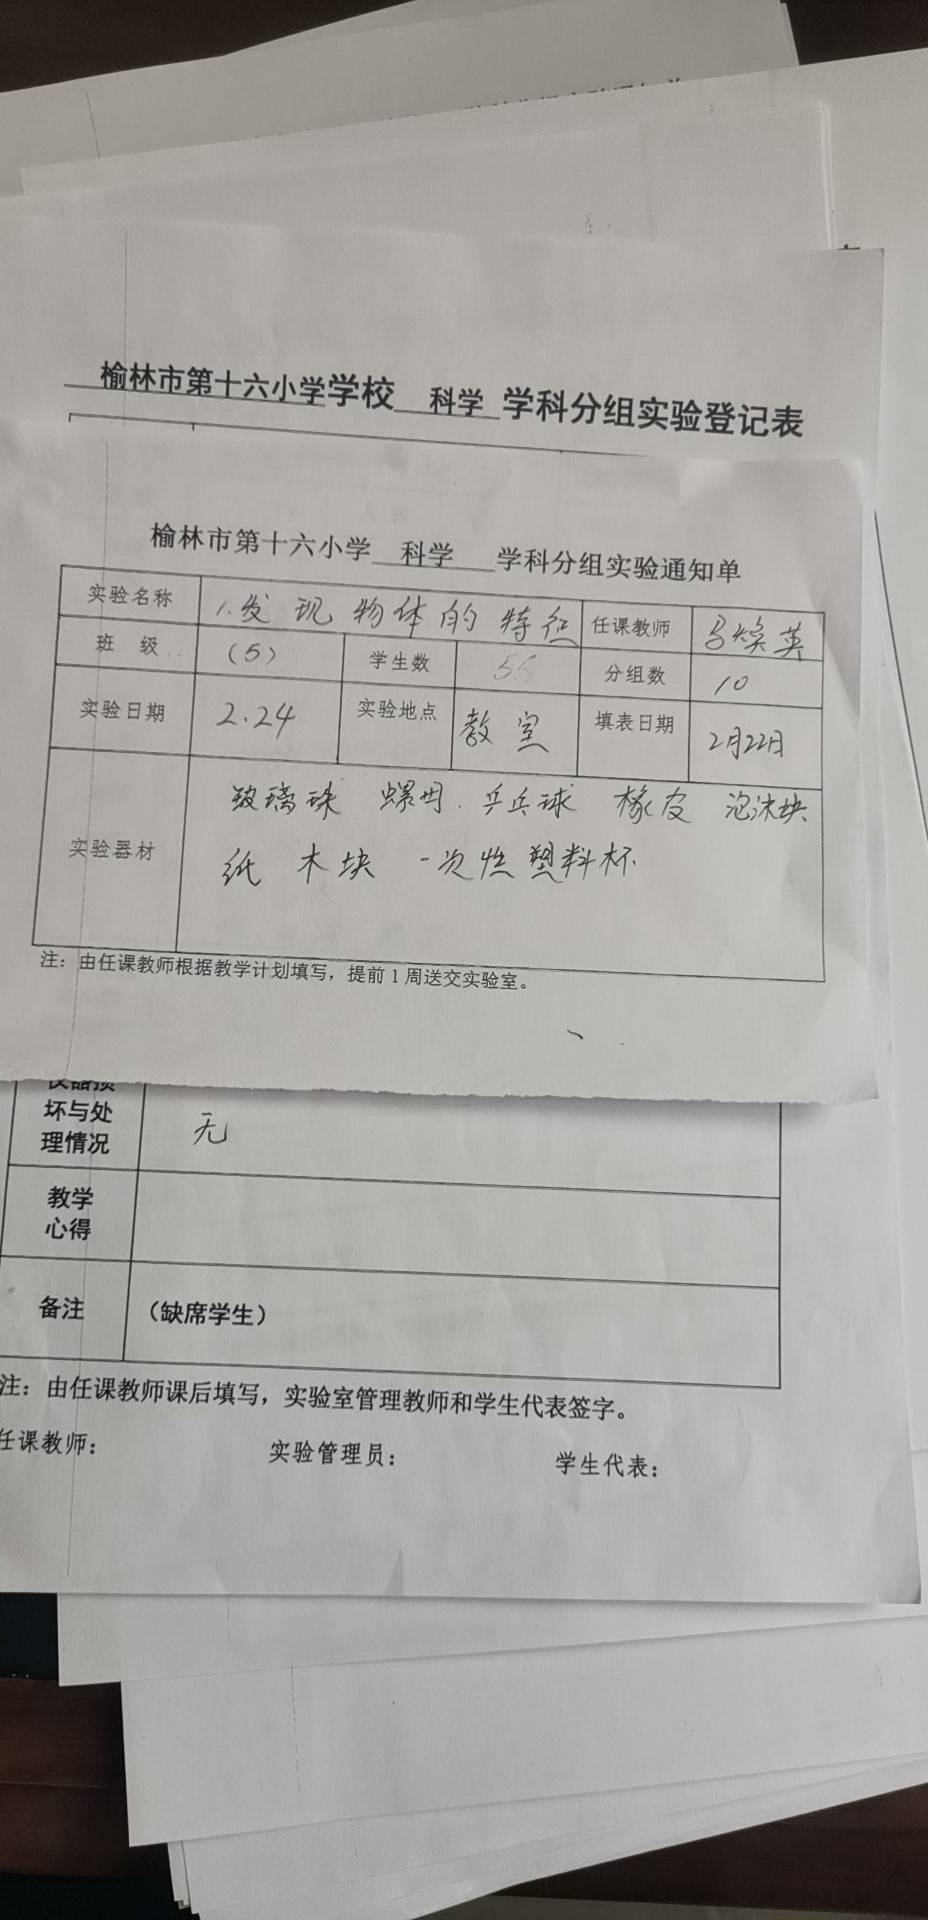 榆林市第十六小学学校 科学 学科分组实验登记表
榆林市第十六小学 科学 学科分组实验通知单
实验名称 1.发现物体的特征 任课教师 马焕英
班 级 (5) 学生数 55 分组数 10
实验日期 2.24 实验地点 教室 填表日期 2月22日
实验器材 玻璃珠 螺母. 乒乓球 橡皮 泡沫块
纸 木块 一次性塑料杯
注：由任课教师根据教学计划填写，提前1周送交实验室。
坏与处
理情况 无
教学
心得
备注 （缺席学生）
注：由任课教师课后填写，实验室管理教师和学生代表签字。
任课教师： 实验管理员： 学生代表：